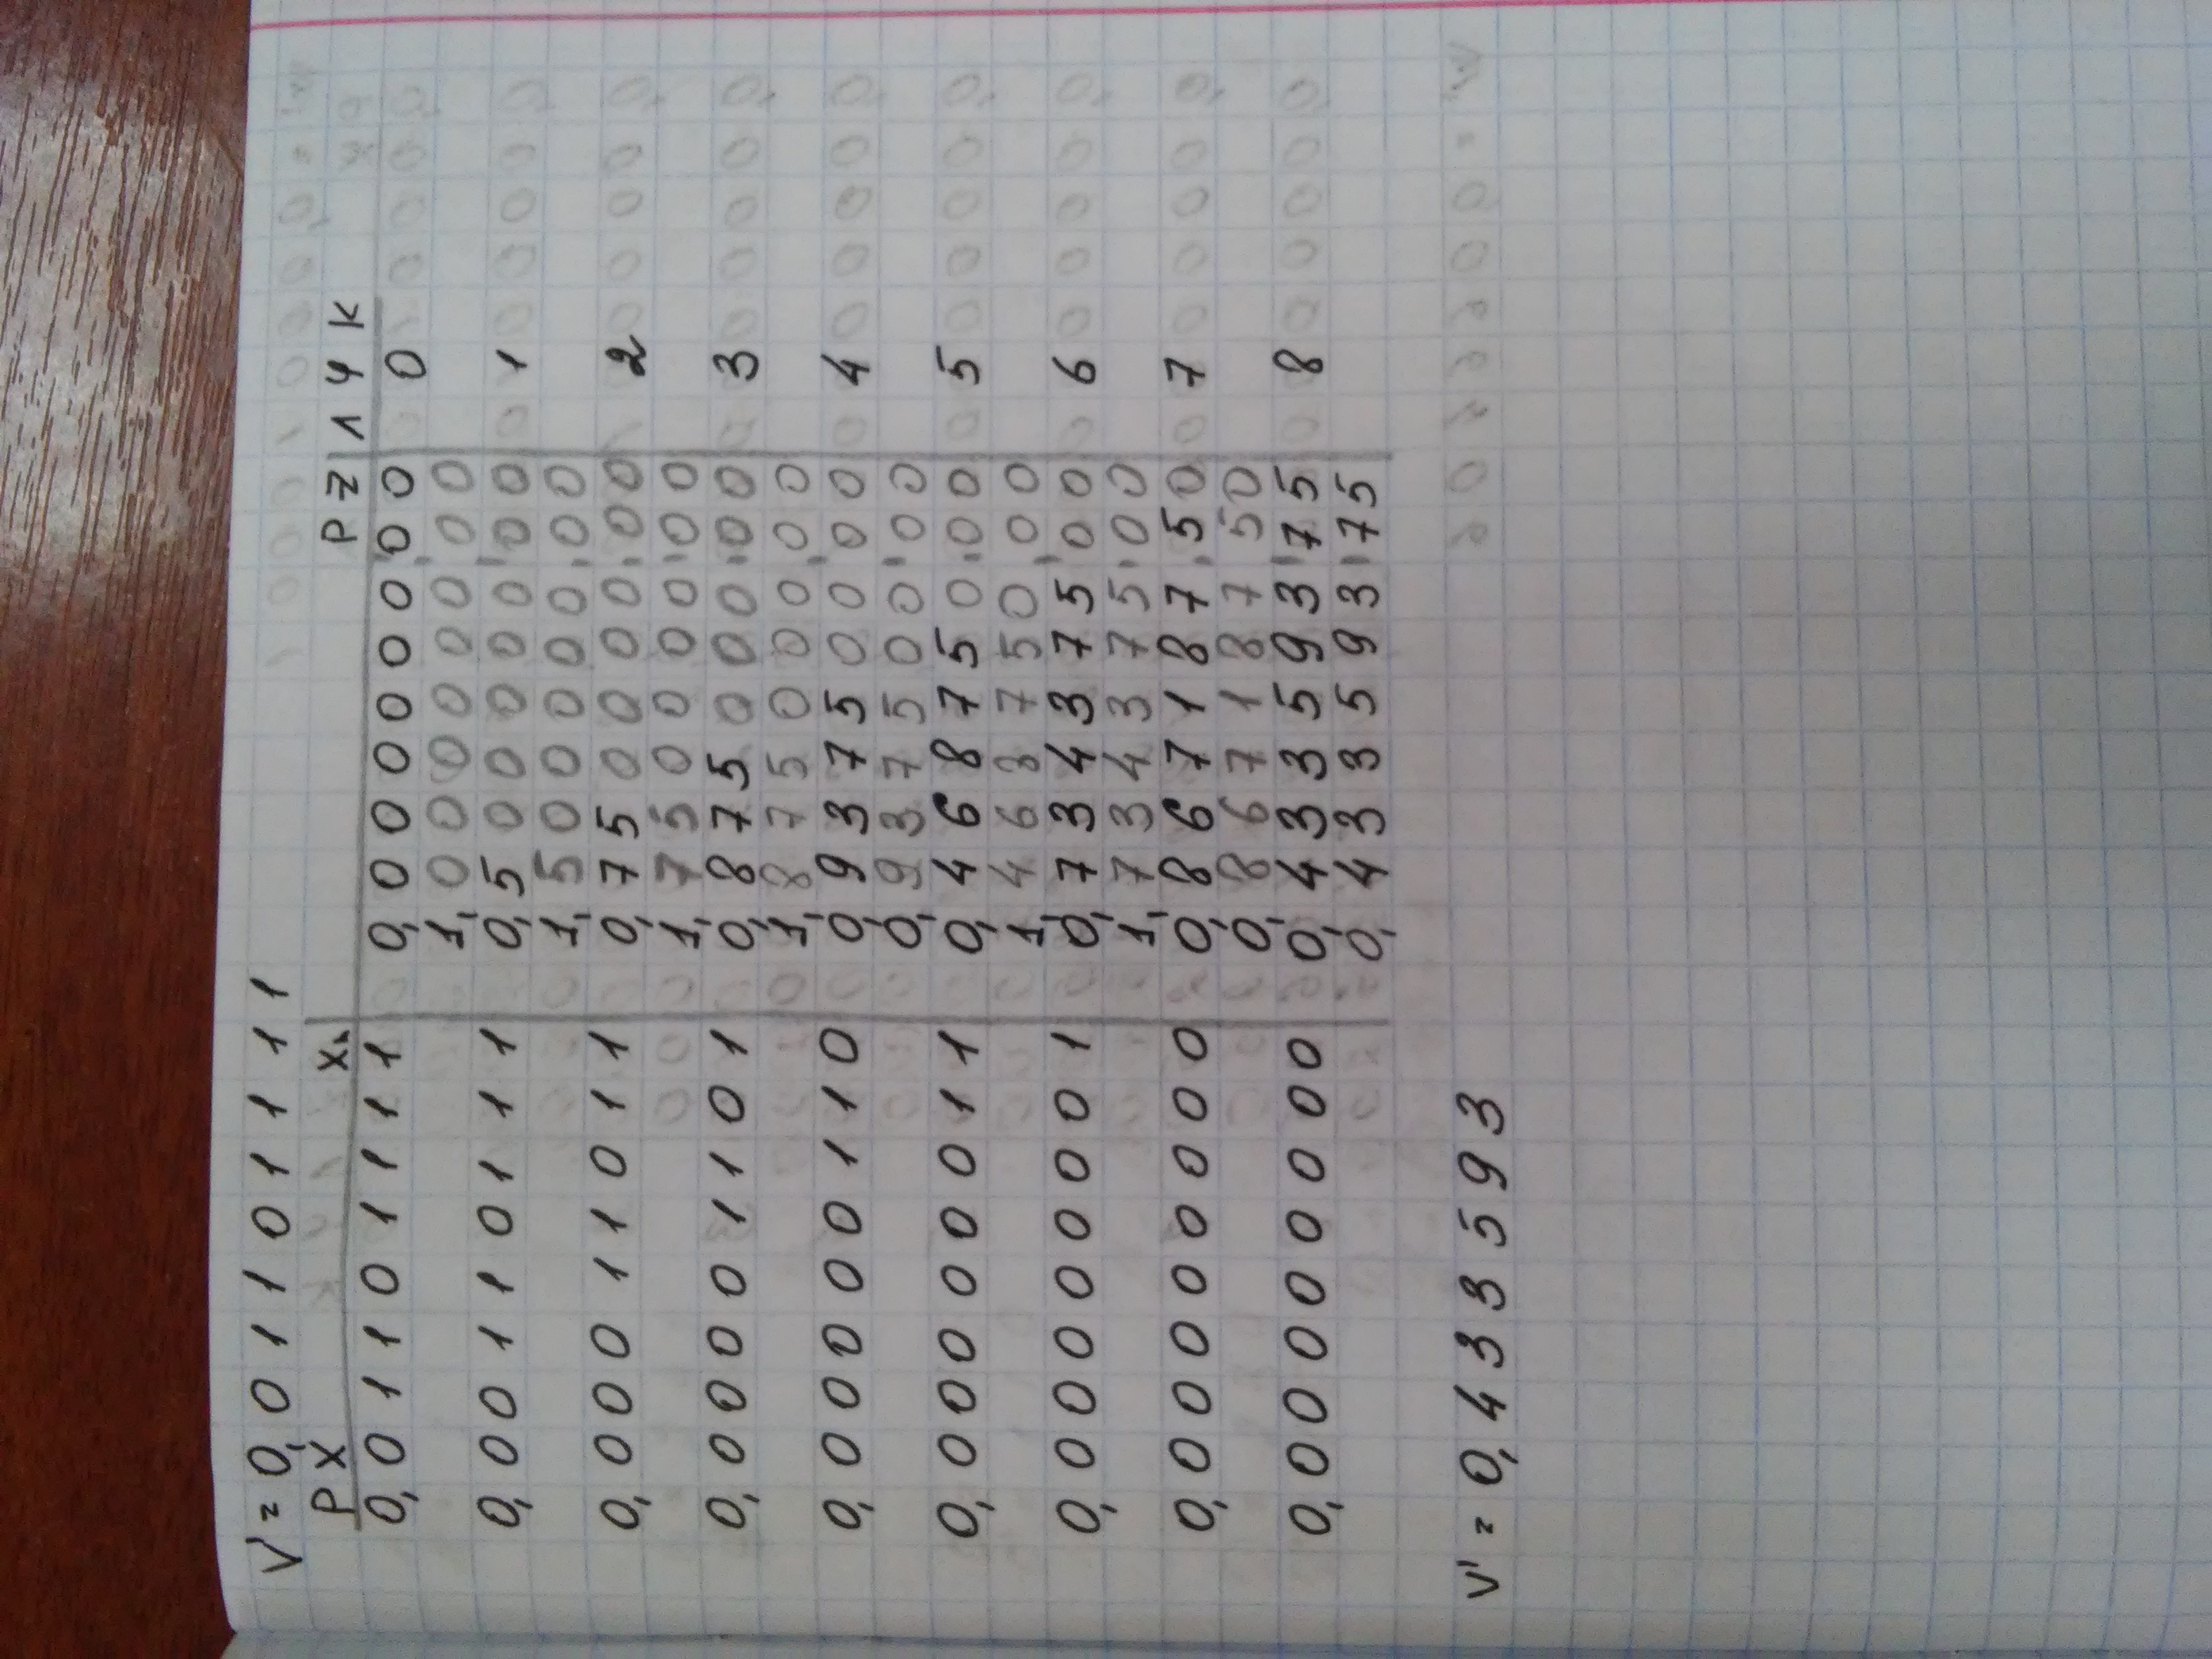 V' = 0,01101111
PX Xn PZ 1 ЧК
0,01101111 0,00000000 0
1,00000000
0,00110111 0,50000000 1
1,50000000
0,00011011 0,75000000 2
1,75000000
0,00001101 0,87500000 3
1,87500000
0,00000110 0,93750000 4
0,93750000
0,00000011 0,46875000 5
1,46875000
0,00000001 0,73437500 6
1,73437500
0,00000000 0,86718750 7
0,86718750
0,00000000 0,43359375 8
0,43359375
V' = 0,433593